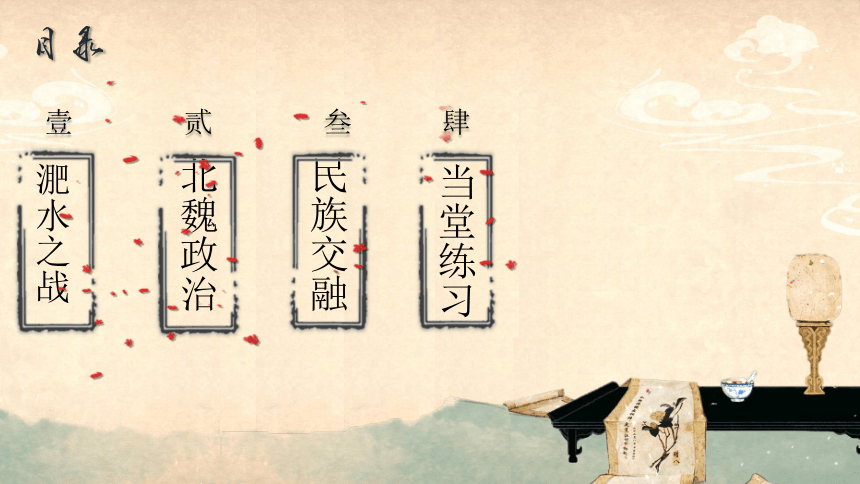 目录
壹
淝水之战
贰
北魏政治
叁
民族交融
肆
当堂练习